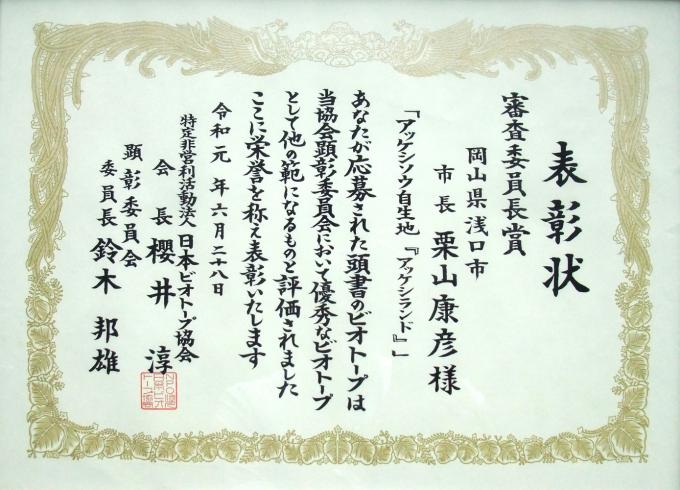 表彰状
審査委員長賞
岡山県浅口市
市長 栗山康彦様
「アッケシソウ自生地『アッケシランド』」
あなたが応募された頭書のビオトープは
当協会顕彰委員会において優秀なビオトープ
として他の範になるものと評価されました
ここに栄誉を称え表彰いたします
令和元年六月二十八日
特定非営利活動法人日本ビオトープ協会
会長 櫻井 淳
顕彰委員会
委員長 鈴木邦雄